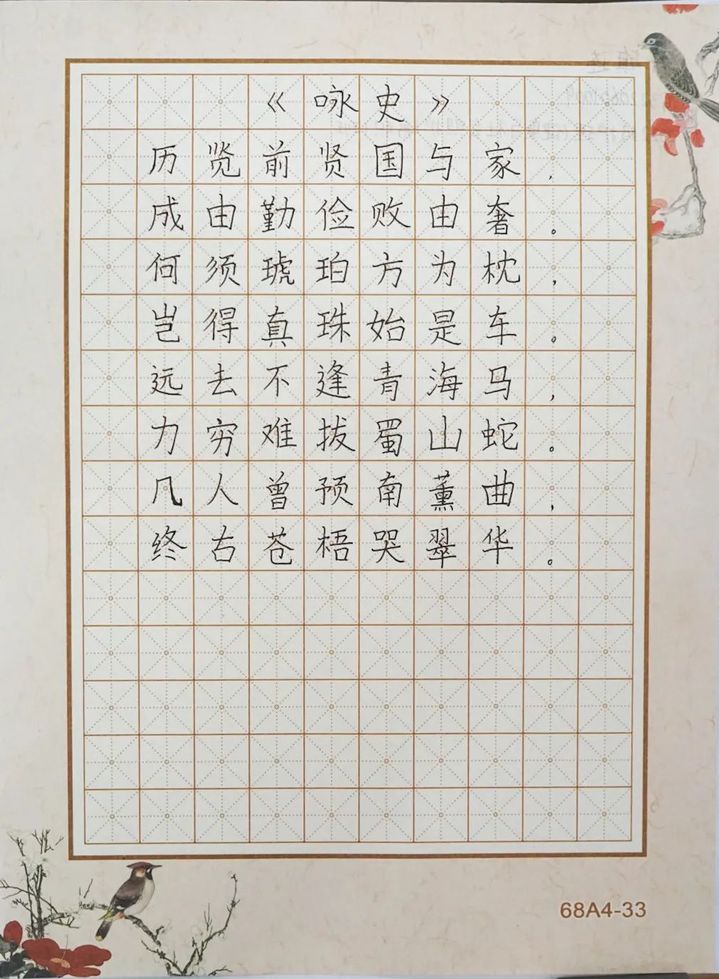 《咏史》
历览前贤国与家,
成由勤俭败由奢。
何须琥珀方为枕,
岂得真珠始是车。
远去不逢青海马,
力穷难拔蜀山蛇。
凡人曾预南薰曲,
终右苍梧哭翠华。
68A4-33